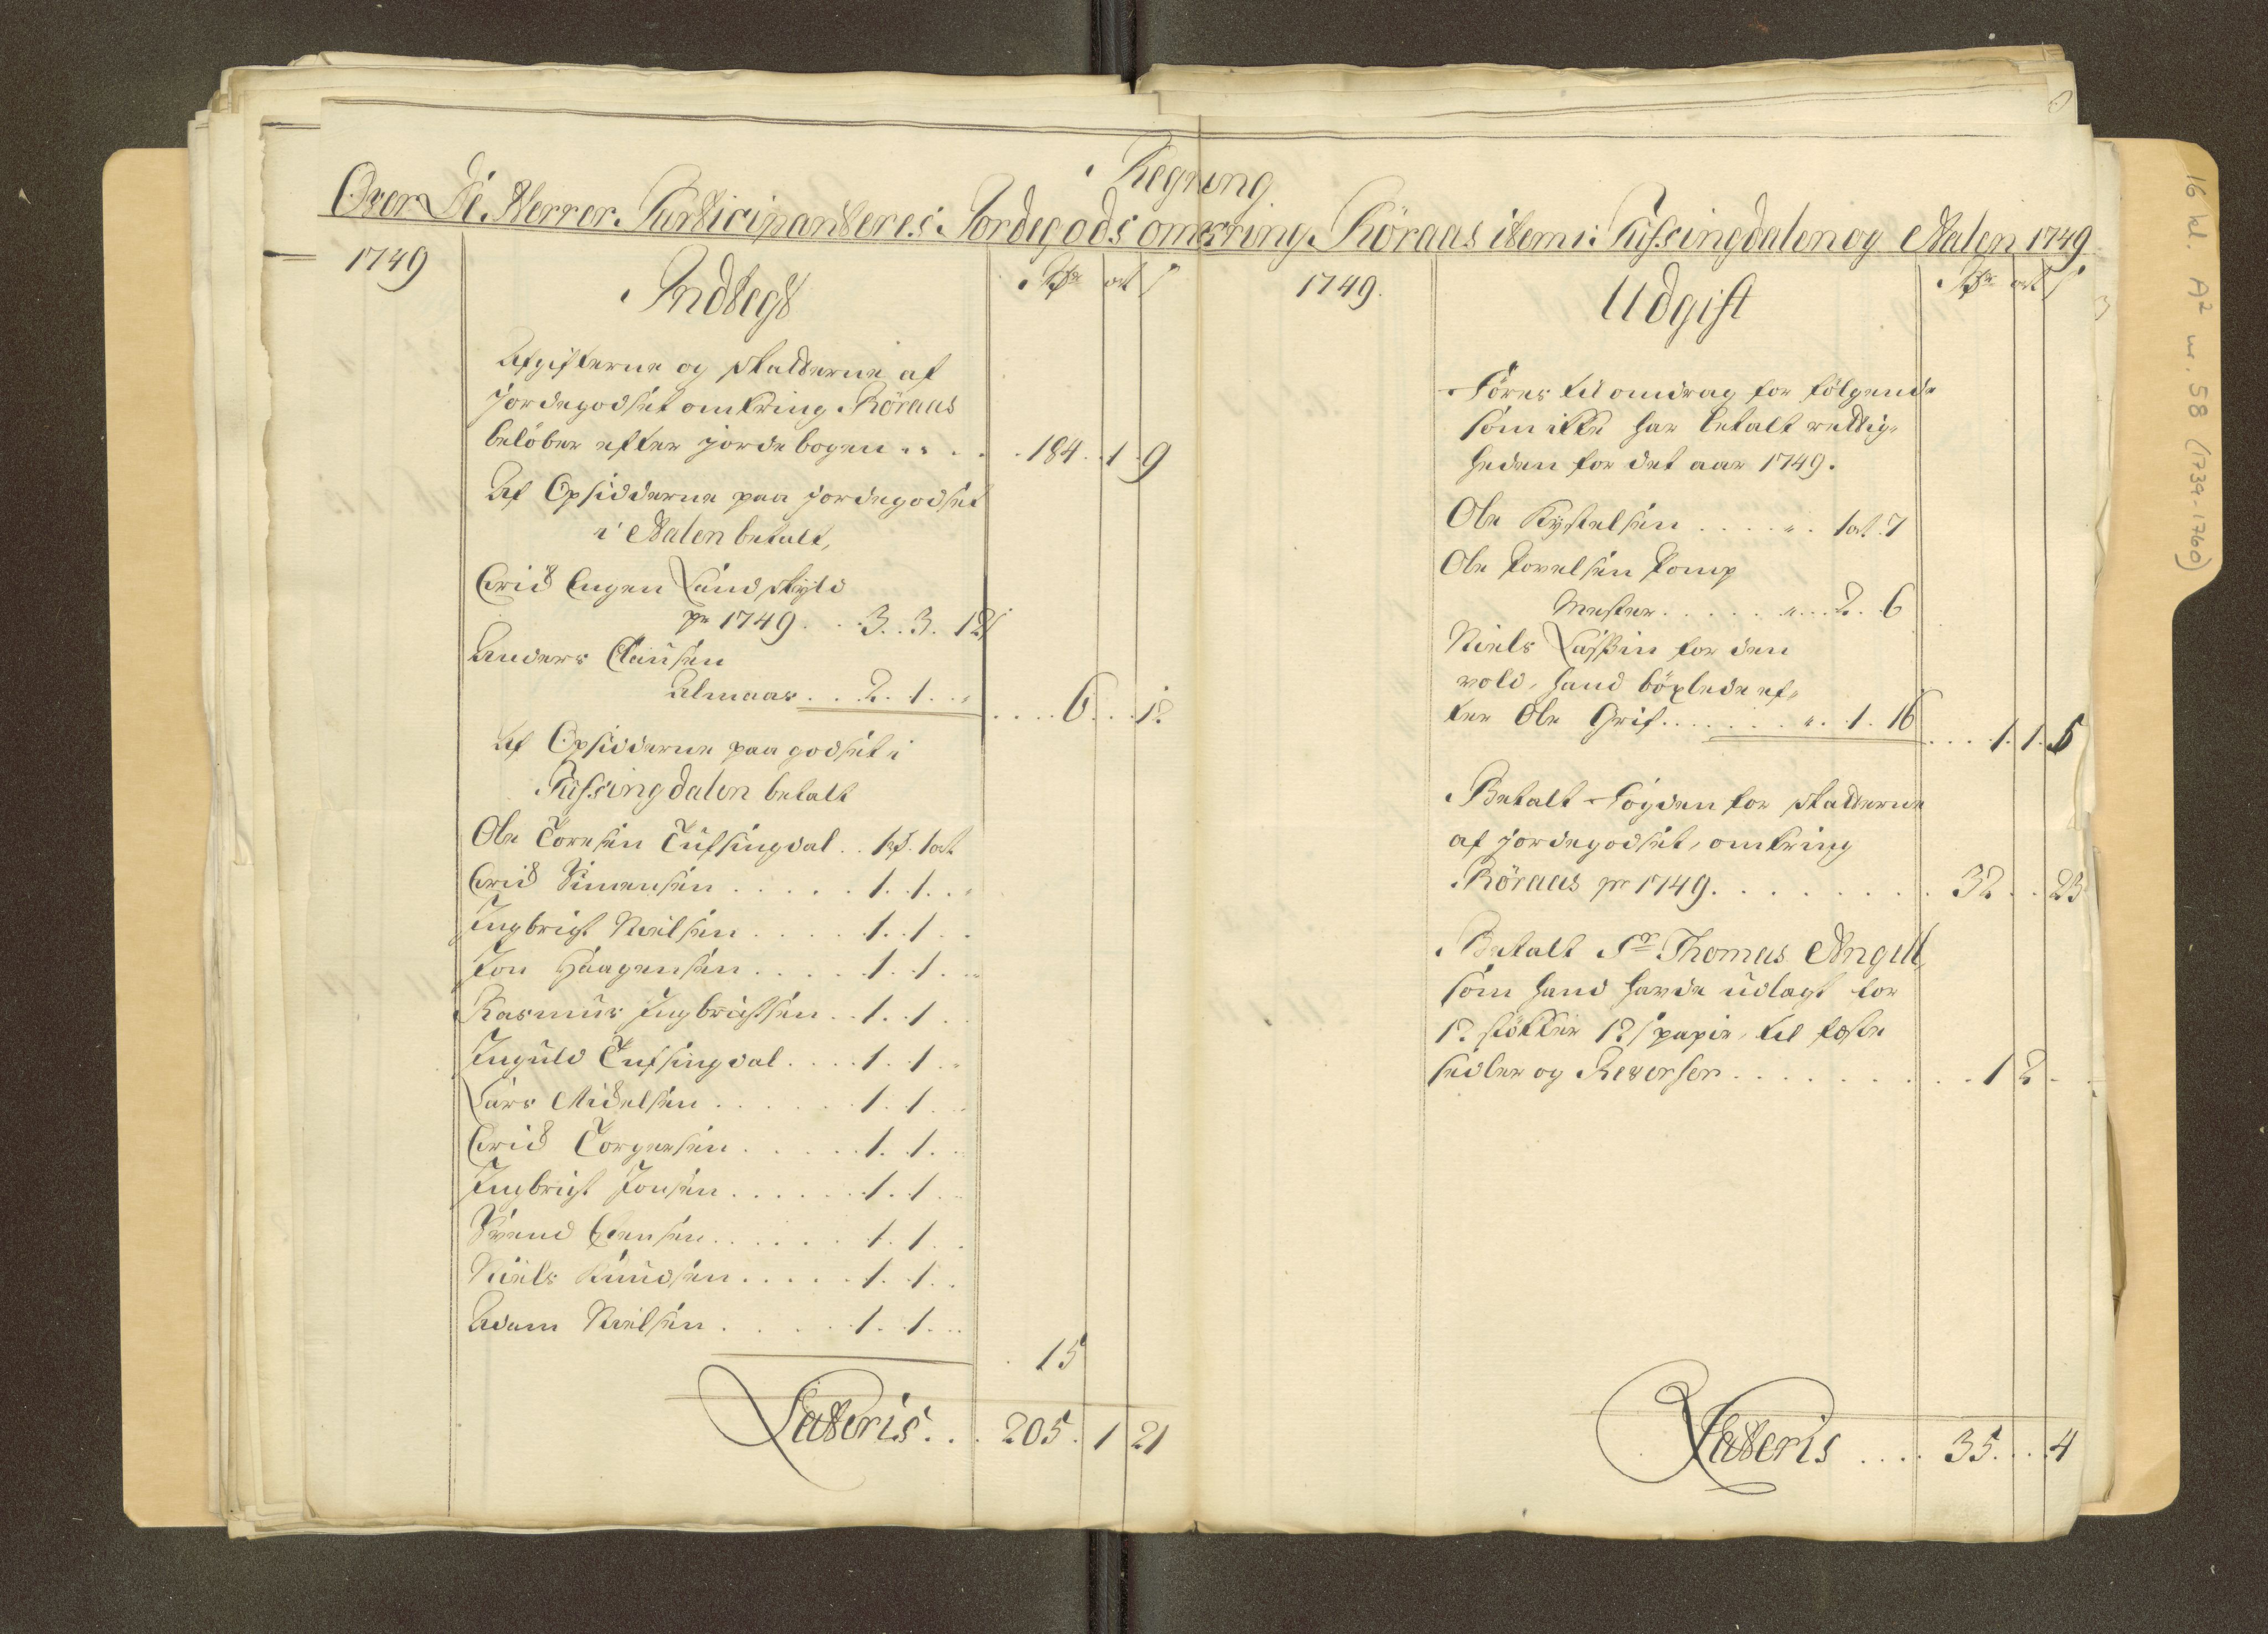 Regning
Over De Herrer Participanteres Jordegods omkring Röraas item i Tufsingdalen og Aalen 1749
1749
Indtegt
Rdr ort s
Afgifterne og skatterne af
jordegodset omkring Röraas
belöber efter jordebogen . . . . 184 . 1 . 9
Af Opsidderne paa jordegodset
i Aalen betalt,
Erich Engen Landskyld
pr 1749 . . . 3 . . 3 . 12 s
Anders Clausen
Almaas . . . 2 . 1 . . „ . . . . 6 . . . 12
Af Opsidderne paa godset i
Tufsingdalen betalt
Ole Toresen Tufsingdal . . 1 rd . 1 ort
Erich Simensen . . . . . 1 . . 1 . . „
Ingbrigt Nielsen . . . . . 1 . . 1 . .
Jon Haagensen . . . . . 1 . . 1 . . „
Rasmus Ingbrigtsen . . 1 . . 1 . .
Inguld Tufsingdal . . . . 1 . . 1 . . „
Lars Michelsen . . . . . . 1 . 1 . . „
Erich Torgersen . . . . . 1 . 1 . .
Ingbrigt Jonsen . . . . . . 1 . . 1 . . „
Svend Estensen . . . . . . 1 . 1 . .
Niels Knudsen . . . . . 1 . . 1 . .
Adam Nielsen . . . . . 1 . 1 . . „
. 15
Lateris . . . 205 . 1 21
1749.
Udgift
Rdr ort s
Föres til omdrag for fölgende
som ikke har betalt rettig„
heden for det aar 1749.
Ole Kystelsen . . . . „ . 1 ort . 7
Ole Povelsen Pomp
Mester . . . . . . „ . . . 2 . . 6
Niels Lassen for den
vold, hand böxlede ef„
ter Ole Grif . . . . . . . „ . . 1 . 16 . . . . 1 . 1 . 5
Betalt Fogden for skatterne
af jordegodset, omkring
Röraas pr 1749 . . . . . . . . . 32 . . 23
Betalt Sr Thomas Angell,
som hand havde udlagt for
12 stökker 12 s papir, til fæste
sedler og Reverser . . . . . . . . . 1 2 . .
Lateris . . . . 35 . . . 4
16 kl. A2 nr. 58 (1734-1760)